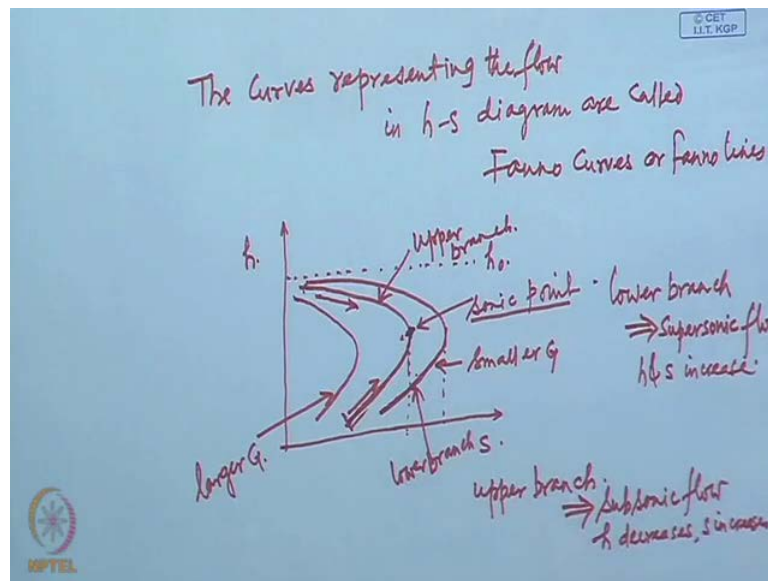 © CET
I.I.T. KGP
The Curves representing the flow
in h-s diagram are called
Fanno Curves or fanno lines
h.
upper
branch.
h₀.
sonic point.
lower branch
⇒ Supersonic flo
h & s increase.
smaller G
larger G.
lower branch
S.
upper branch.
⇒ Subsonic flow
h decreases, s increase
NPTEL